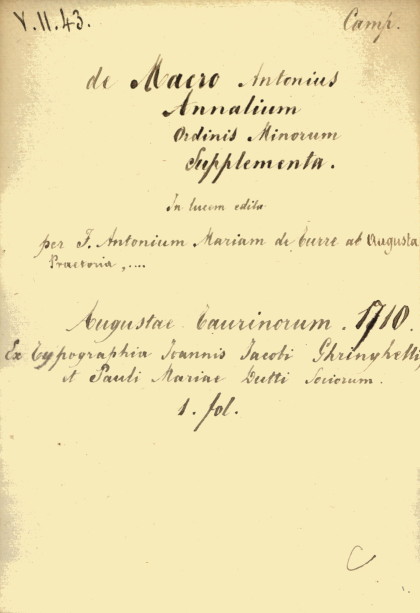 V.11.43. Camp.
de Macro Antonius
Annalium
Ordinis Minorum
Supplementa.
In lucem edita
per F. Antonium Mariam de Turre ab Augusta
Praetoria,....
Augustae Taurinorum. 1710.
Ex Typographia Joannis Jacobi Ghringhelli,
et Pauli Mariae Dutti Sociorum.
1. fol.
C